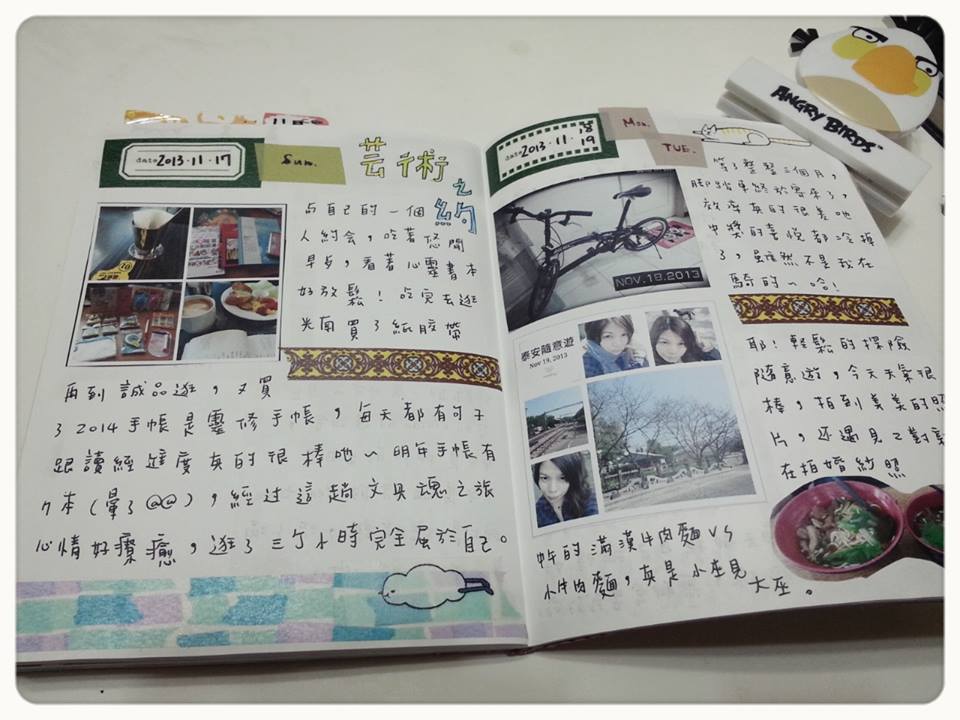 DATE 2013.11.17
Sun.
芸術
之
約
与自己的一個
人約会，吃著悠閒
早歺，看著心靈書本
好放鬆！吃完去逛
光南買了紙胶帶
再到誠品逛，又買
了2014手帳是靈修手帳，每天都有句子
跟讀經進度真的很棒吔～明年手帳有
7本(暈了@@)，經过這趟文具魂之旅
心情好療癒，逛了三个小時完全屬於自己。
DATE 2013.11.18
19
Mon.
TUE.
等了整整三個月，
脚踏車終於寄來了，
效率真的很差吔
中獎的喜悅都冷掉
了，雖然不是我在
騎的～哈！
NOV.18.2013
泰安隨意遊
Nov 19, 2013
耶！輕鬆的探險
隨意遊，今天天氣很
棒，拍到美美的照
片，还遇見2對新
在拍婚紗照
的滿漢牛肉麵VS
小牛肉麵，真是小巫見
大巫。
ANGRY BIRDS